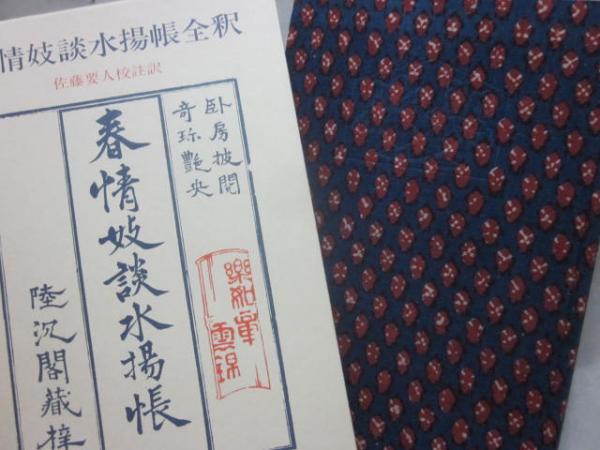 情妓談水揚帳全釈
佐藤要人校註訳
臥房披閲
奇珎艶央
春情妓談水揚帳
陸沉閣蔵